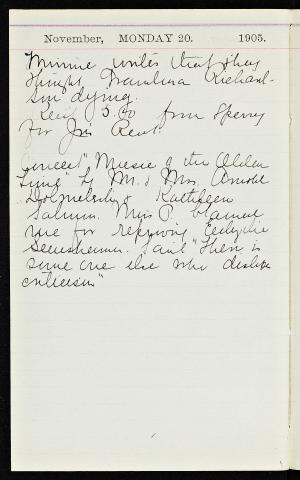 November, MONDAY 20. 1905.
Minnie writes that they
think Grandma Richard-
son dying.
Rec'd 5.00 from Sperry
for Jos Rent.
Concert, "Music of the Olden
Time" by Mr. & Mrs. Arnold
Dolmetsch & Kathleen
Salmon. Miss P. blamed
me for reproving
said "There is
some one else who dislikes
criticism"